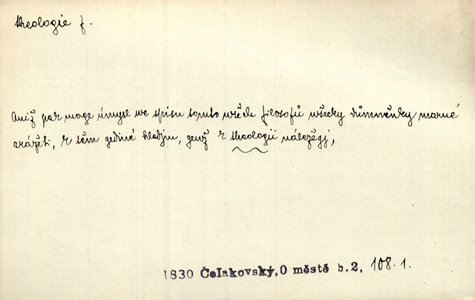 theologie f.
Aniž pak moge úmysl we spisu tomto wšech filosofů wšecky domněnky marné
zrážeti, k těm gediné hledjm, genž k theologii náležegj,
1830 Čelakovský, O městě b.2, 108.1.